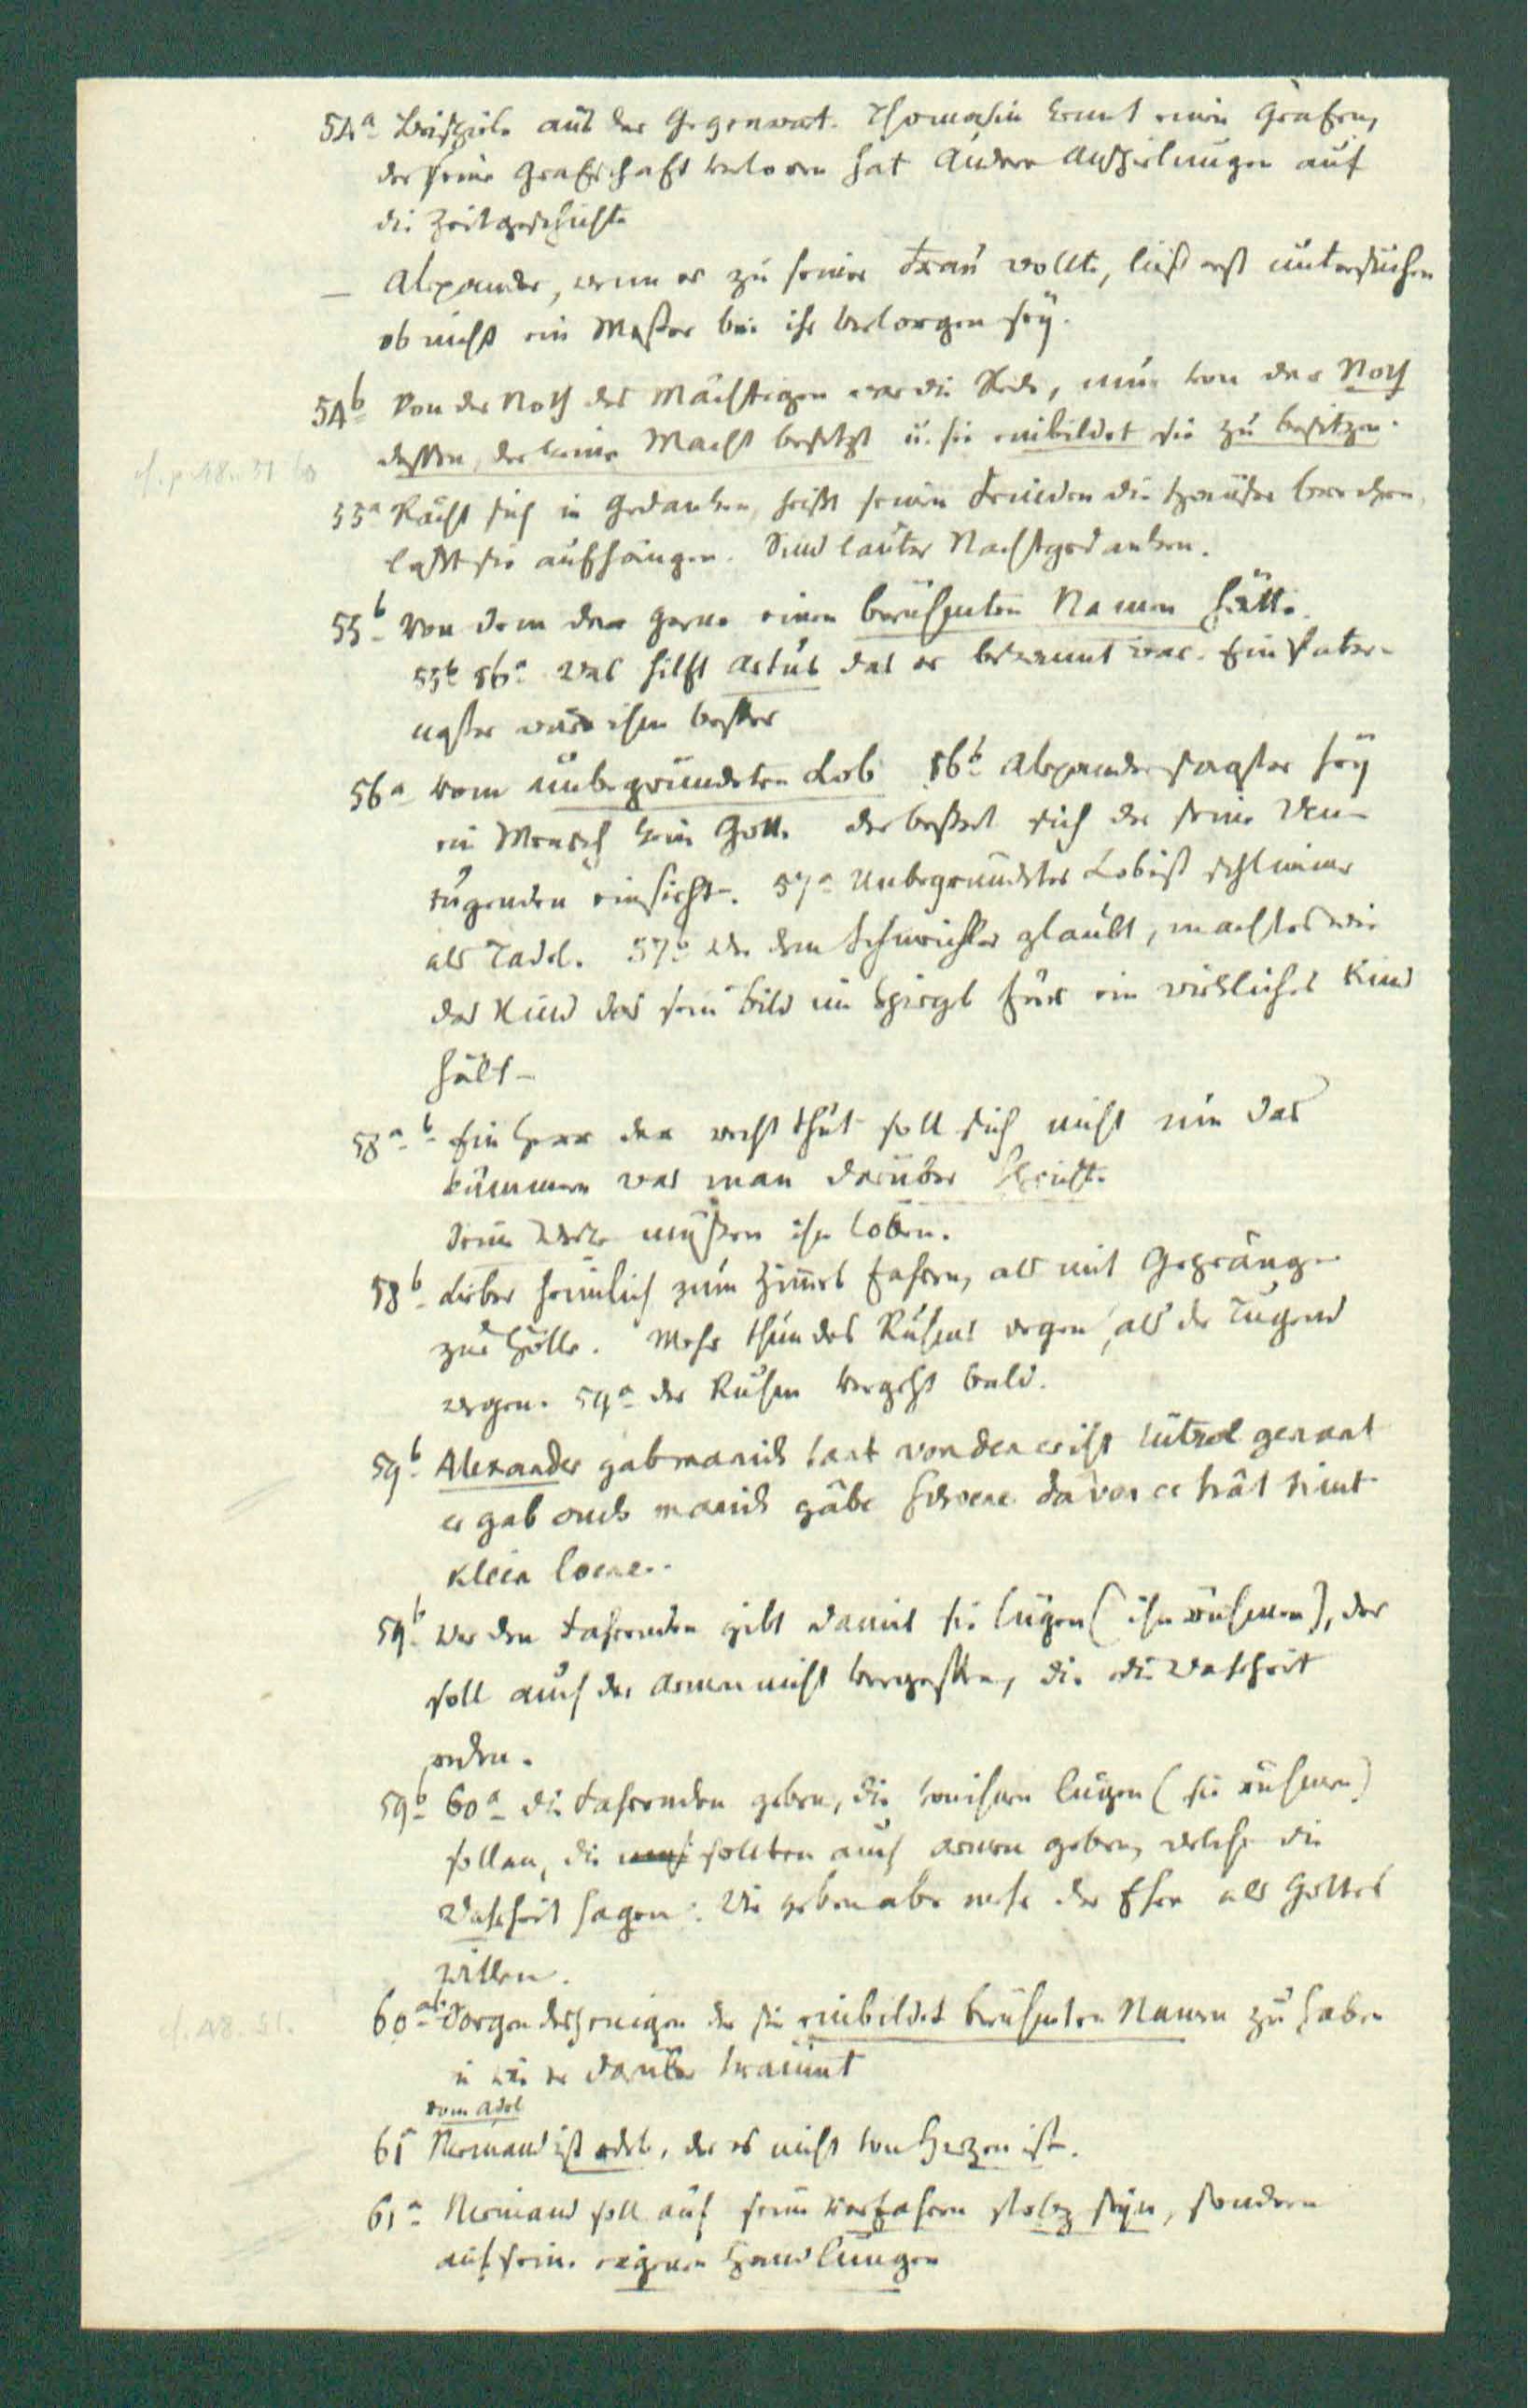 54a Beispiele aus der Gegenwart. Thomasin kennt einen Grafen,
der seine Grafschaft verloren hat Andere Anspielungen auf
die Zeitgeschichte
– Alexander, wenn er zu seiner Frau wollte, ließ erst untersuchen
ob nicht ein Messer bei ihr verborgen sey.
54b Von der Noth des Mächtigen war die Rede, nun von der Noth
dessen, der keine Macht besitzt u. sie einbildet sie zu besitzen.
cf. p. 48. 51
55a Rächt sich in Gedanken, heißt seinen Feinden die Häuser brechen,
laßt sie aufhängen. Sind lauter Nachtgedanken.
55b Von dem der gerne einen berühmten Namen hätte.
55b 56a Was hilft Artus das er bekannt war. Ein Pater-
noster wäre ihm besser
56a Vom unbegründeten Lob 56b Alexander sagt er sey
ein Mensch kein Gott. der bessert sich der seine Un-
tugenden einsieht. 57a Unbegründetes Lob ist schlimmer
als Tadel. 57b Wer dem Schmeichler glaubt, macht es wie
das Kind das sein Bild im Spiegel für ein wirkliches Kind
hält –
58a b Ein Herr der recht thut soll sich nicht um das
kümmern was man darüber spricht.
Seine Werke müssen ihn loben.
58b Lieber heimlich zum Himmel fahren, als mit Gepränge
zur Hölle. Mehr thun des Ruhms wegen, als der Tugend
wegen. 59a der Ruhm vergeht bald.
59b Alexander gab manich lant von den er ist lützel genant
er gab ouch manich gäbe swere davon er hât niut
klein loene.
59b Wer den Fahrenden gibt damit sie lügen (ihn rühmen), der
soll auch der Armen nicht vergessen, die die Wahrheit
reden.
59b 60a die Fahrenden geben, die von ihnen lügen (sie rühmen)
sollen, die sollten auch Armen geben, welche die
Wahrheit sagen. Die geben aber mehr der Ehre als Gottes
willen.
cf. 48. 51.
60a Sorgen desjenigen der sie einbildet berühmten Namen zu haben
u wie er darüber träumt
vom Adel
61 Niemand ist edel, der es nicht von Herzen ist.
61a Niemand soll auf seine Vorfahren stolz seyn, sondern
auf seine eigenen Handlungen